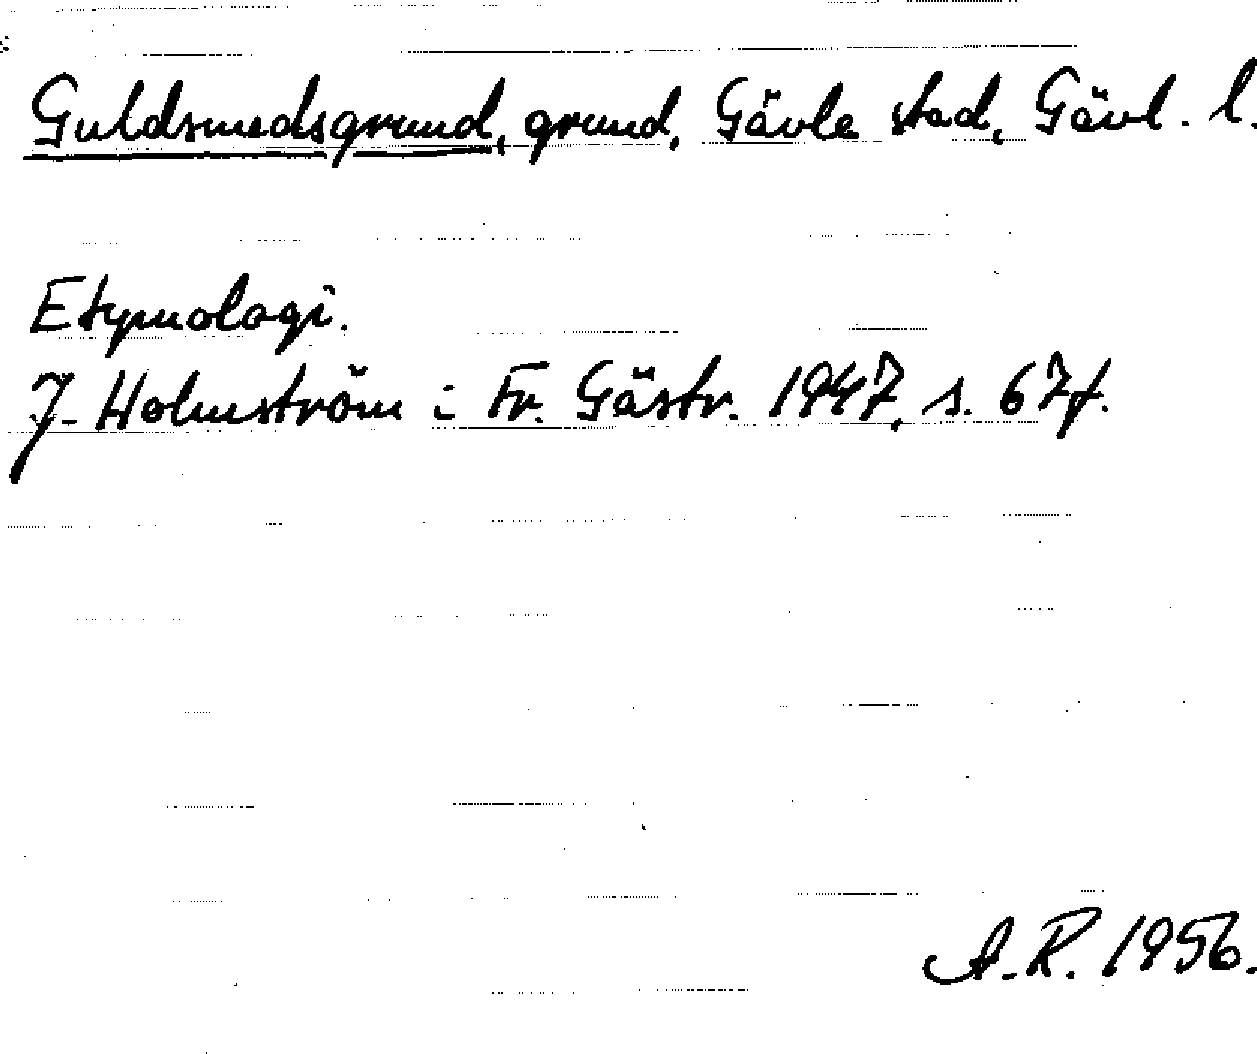 Guldsmedsgrund, grund, Gävle stad, Gävl. l.
Etymologi.
J. Holmström i Fr. Gästr. 1947, s. 67f.
A.R. 1956.